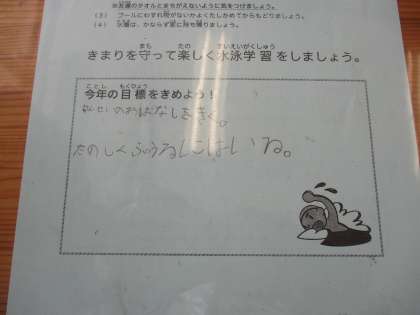 ※友達のタオルとまちがえないように気をつけましょう。
(3) プールにわすれ物がないかよくたしかめてからもどりましょう。
(4) 水着は、かならず家に持ち帰りましょう。
まち たの すいえいがくしゅう
きまりを守って楽しく水泳学習をしましょう。
ことし もくひょう
今年の目標をきめよう!
せんせいのおはなしをきく。
たのしくぷうるにはいね。